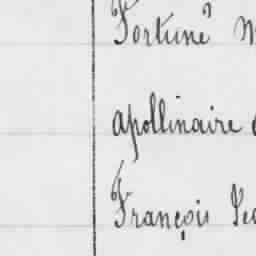 Fortuné
apollinaire
François